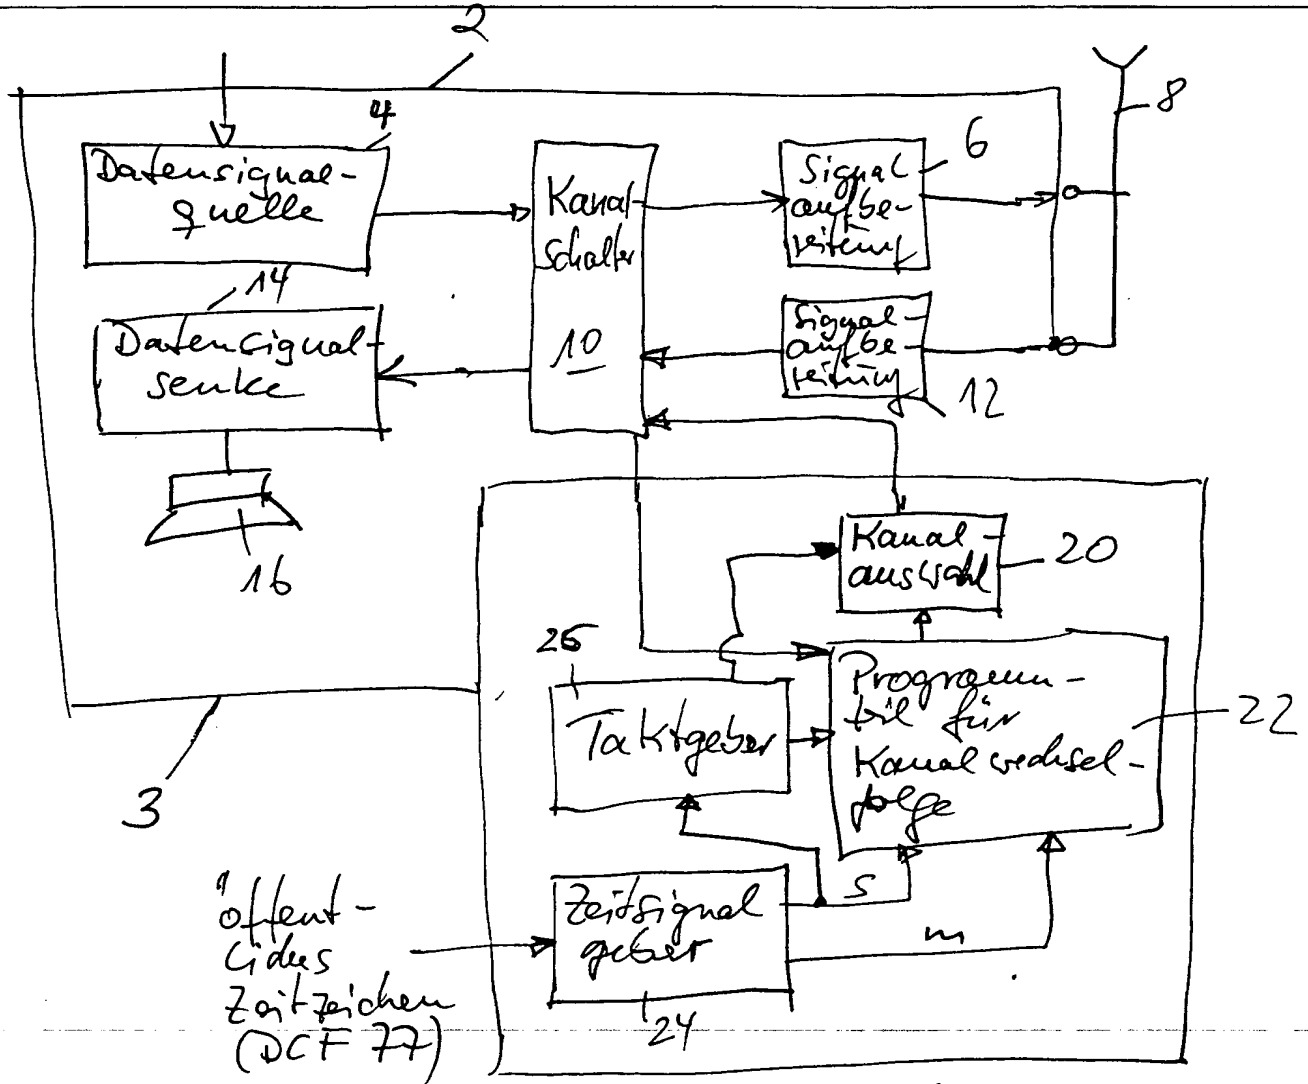 2
8
4
Datensignal-
quelle
Kanal
Schalter
10
6
Signal
aufbe-
reitung
14
Datensignal-
senke
Signal-
aufbe
reitung
12
16
Kanal-
auswahl
20
26
Taktgeber
Programm-
teil für
Kanalwechsel-
folge
22
3
öffent-
liches
Zeitzeichen
(DCF 77)
Zeitsignal
geber
s
m
24